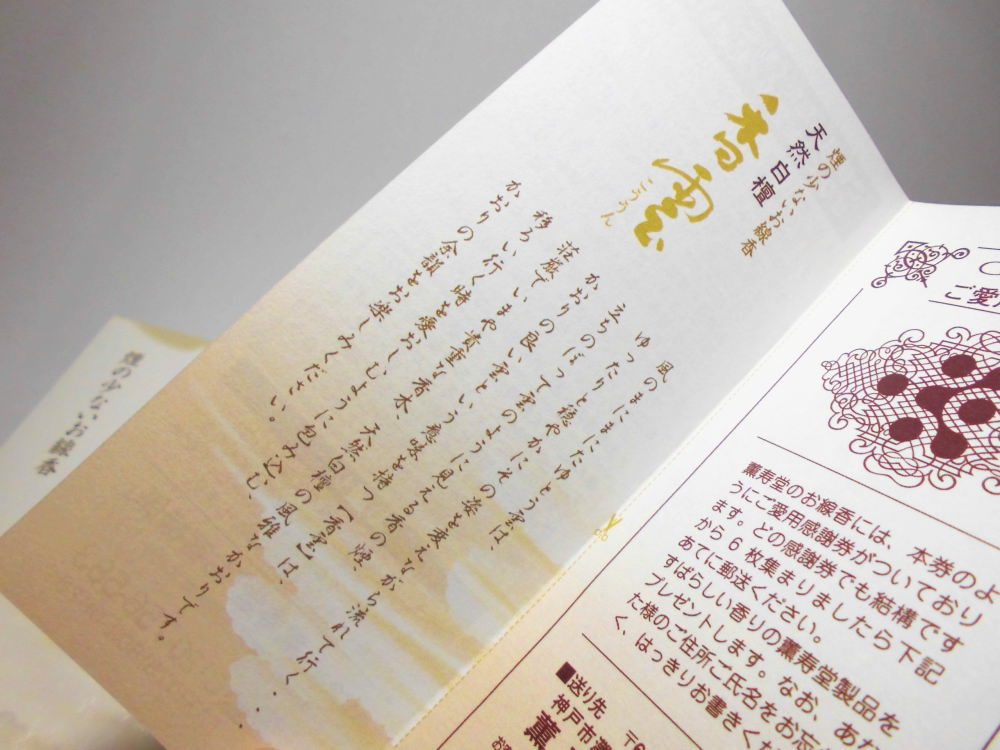 煙の少ないお線香
天然白檀
香雲
こううん
風のまにまにたゆとう雲は、
ゆったりと穏やかにその姿を変えながら流れて行く・・・
立ちのぼって雲のように見える香の煙。
かおりの良い雲という意味を持つ「香雲」は、
荘厳でいまや貴重な香木、天然白檀の風雅なかおりです。
移ろい行く時を愛おしむように包み込む、
かおりの余韻をお楽しみください。
煙の少ないお線香
ご愛用
薫寿堂のお線香には、本券のよ
うにご愛用感謝券がついており
ます。どの感謝券でも結構です
から6枚集まりましたら下記
あてに郵送ください。
すばらしい香りの薫寿堂製品を
プレゼントします。なお、あ
た様のご住所ご氏名をお忘
く、はっきりお書きくだ
■送り先
〒6
神戸市灘
薫